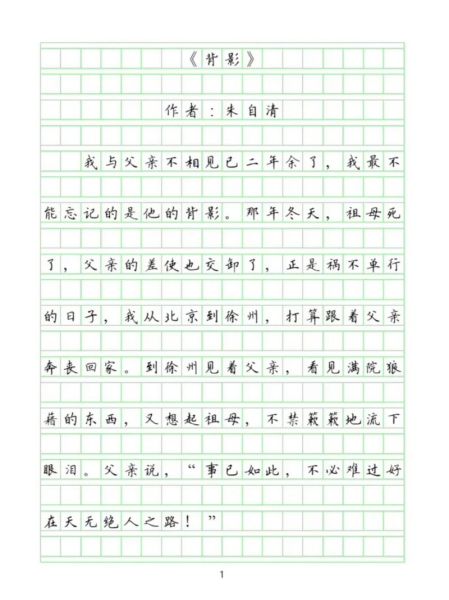 《背影》
作者：朱自清
我与父亲不相见已二年余了，我最不
能忘记的是他的背影。那年冬天，祖母死
了，父亲的差使也交卸了，正是祸不单行
的日子，我从北京到徐州，打算跟着父亲
奔丧回家。到徐州见着父亲，看见满院狼
藉的东西，又想起祖母，不禁簌簌地流下
眼泪。父亲说，“事已如此，不必难过好
在天无绝人之路！”
1